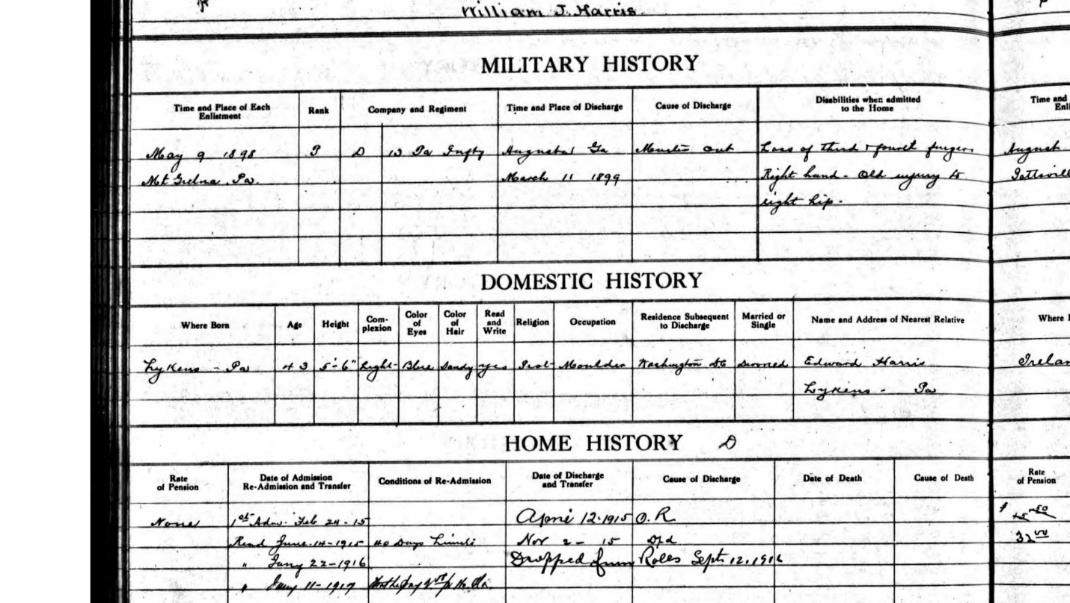 William J. Harris.
MILITARY HISTORY
Time and Place of Each Enlistment Rank Company and Regiment Time and Place of Discharge Cause of Discharge Disabilities when admitted to the Home Time and
May 9 1898 P D 13 Pa Infty Augusta Ga Muster out Loss of third & fourth fingers August
Mt Gretna Pa. March 11 1899 Right hand - Old injury to Pottsvill
right hip.
DOMESTIC HISTORY
Where Born Age Height Com-plexion Color of Eyes Color of Hair Read and Write Religion Occupation Residence Subsequent to Discharge Married or Single Name and Address of Nearest Relative Where
Lykens - Pa 43 5'-6" Light Blue Sandy yes Prot Moulder Washington DC Edward Harris Irelan
Lykens - Pa
HOME HISTORY D
Rate of Pension Date of Admission Re-Admission and Transfer Conditions of Re-Admission Date of Discharge and Transfer Cause of Discharge Date of Death Cause of Death Rate of Pension
None 1st Adm. Feb 24-15 April 12-1915 O.R $
Read June 14-1915 40 Days Nov 2 - 15 32 00
" Jany 22-1916 Dropped from Roles Sept 12, 1916
" Jany 11-1917